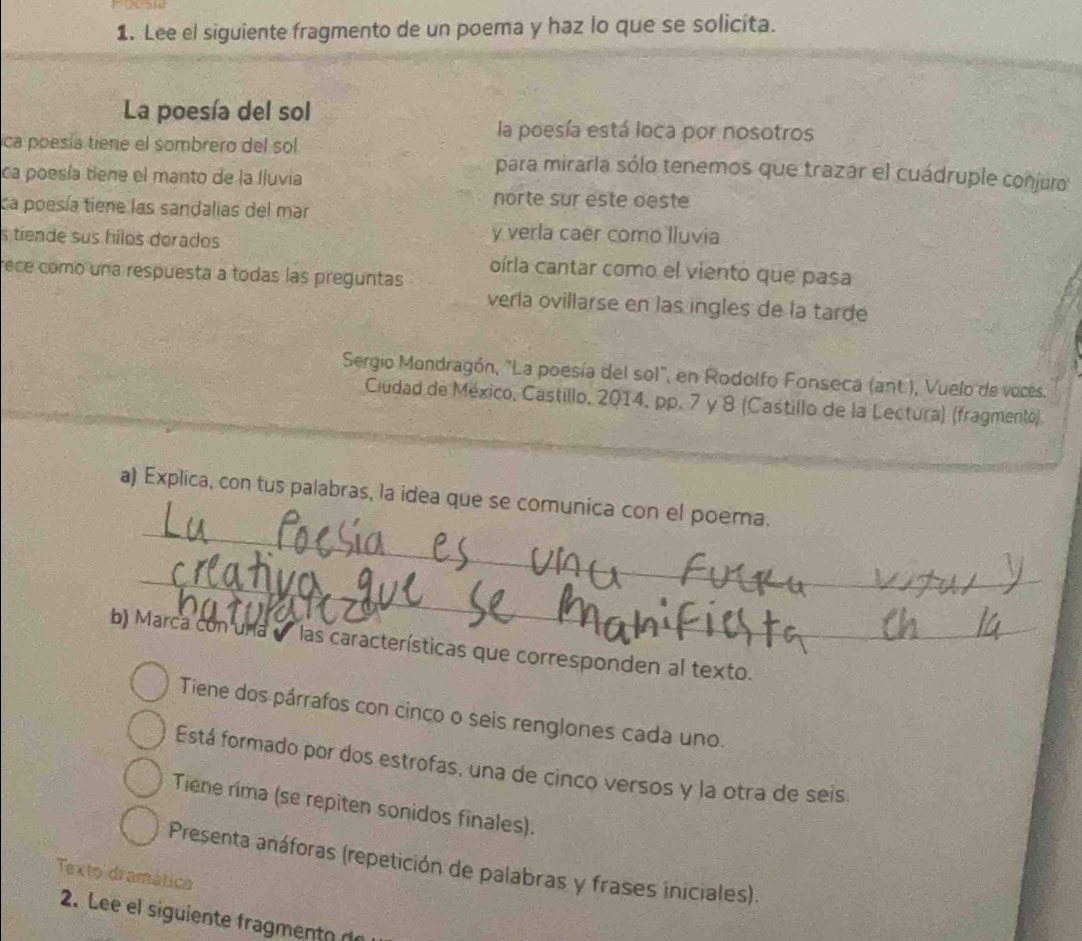 Poesía
1. Lee el siguiente fragmento de un poema y haz lo que se solicita.
La poesía del sol
ca poesía tiene el sombrero del sol
ca poesía tiene el manto de la lluvia
ca poesía tiene las sandalias del mar
s tiende sus hilos dorados
rece como una respuesta a todas las preguntas
la poesía está loca por nosotros
para mirarla sólo tenemos que trazar el cuádruple conjuro:
norte sur este oeste
y verla caer como lluvia
oírla cantar como el viento que pasa
verla ovillarse en las ingles de la tarde
Sergio Mondragón, "La poesía del sol", en Rodolfo Fonseca (ant.), Vuelo de voces.
Ciudad de México, Castillo, 2014, pp. 7 y 8 (Castillo de la Lectura) (fragmento).
a) Explica, con tus palabras, la idea que se comunica con el poema.
La Poesía es una Fuerza vital y
creativa que se Manifiesta en la
naturaleza
b) Marca con una ✔ las características que corresponden al texto.
Tiene dos párrafos con cinco o seis renglones cada uno.
Está formado por dos estrofas, una de cinco versos y la otra de seis.
Tiene rima (se repiten sonidos finales).
Presenta anáforas (repetición de palabras y frases iniciales).
Texto dramático
2. Lee el siguiente fragmento de